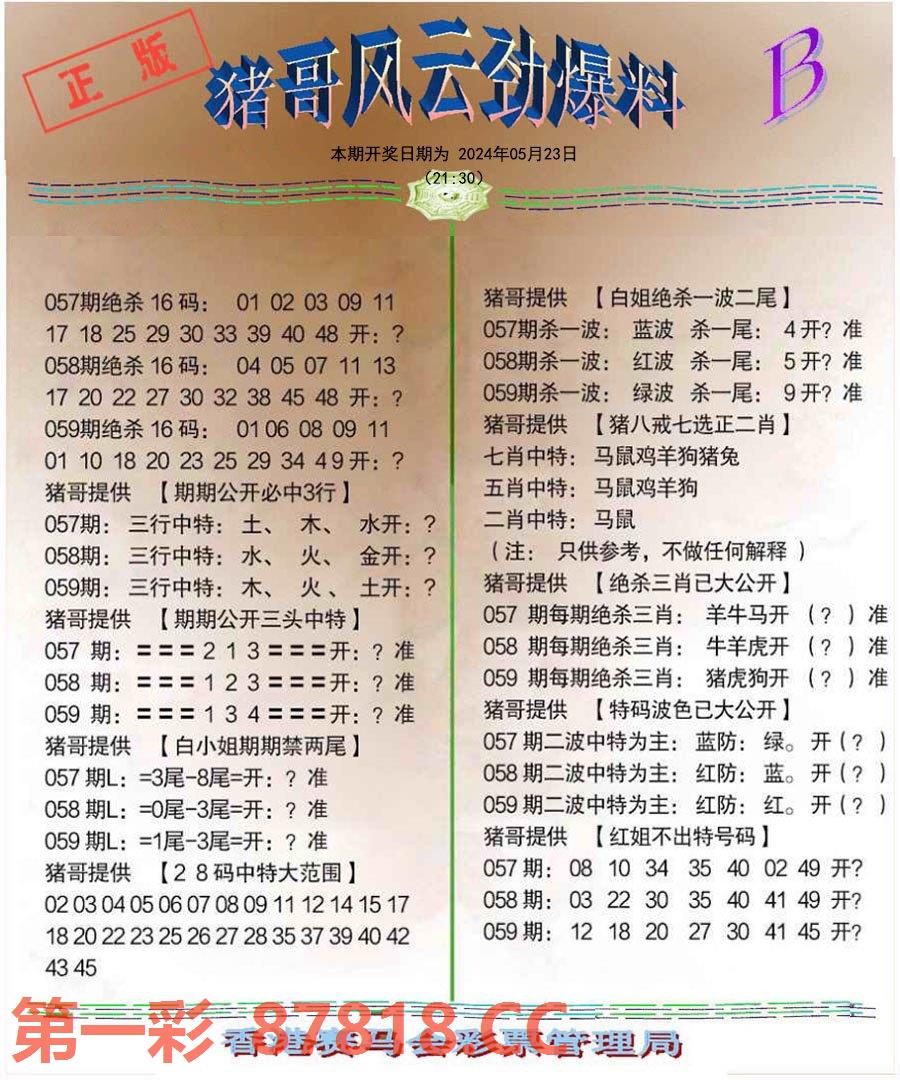 正版
猪哥风云劲爆料
B
本期开奖日期为 2024年05月23日
（21:30）
057期绝杀 16 码： 01 02 03 09 11
17 18 25 29 30 33 39 40 48 开：?
058期绝杀 16 码： 04 05 07 11 13
17 20 22 27 30 32 38 45 48 开：?
059期绝杀 16 码： 01 06 08 09 11
01 10 18 20 23 25 29 34 4 9 开：?
猪哥提供 【期期公开必中3行】
057期： 三行中特： 土、 木、 水开：?
058期： 三行中特： 水、 火、 金开：?
059期： 三行中特： 木、 火、 土开：?
猪哥提供 【期期公开三头中特】
057 期：＝＝＝2 1 3＝＝＝开：? 准
058 期：＝＝＝1 2 3＝＝＝开：? 准
059 期：＝＝＝1 3 4＝＝＝开：? 准
猪哥提供 【白小姐期期禁两尾】
057 期L：=3尾-8尾=开：? 准
058 期L：=0尾-3尾=开：? 准
059 期L：=1尾-3尾=开：? 准
猪哥提供 【2 8 码中特大范围】
02 03 04 05 06 07 08 09 11 12 14 15 17
18 20 22 23 25 26 27 28 35 37 39 40 42
43 45
猪哥提供 【白姐绝杀一波二尾】
057期杀一波： 蓝波 杀一尾： 4 开? 准
058期杀一波： 红波 杀一尾： 5 开? 准
059期杀一波： 绿波 杀一尾： 9 开? 准
猪哥提供 【猪八戒七选正二肖】
七肖中特： 马鼠鸡羊狗猪兔
五肖中特： 马鼠鸡羊狗
二肖中特： 马鼠
（注： 只供参考，不做任何解释 ）
猪哥提供 【绝杀三肖已大公开】
057 期每期绝杀三肖： 羊牛马开 （? ）准
058 期每期绝杀三肖： 牛羊虎开 （? ）准
059 期每期绝杀三肖： 猪虎狗开 （? ）准
猪哥提供 【特码波色已大公开】
057 期二波中特为主： 蓝防： 绿。 开（? ）
058 期二波中特为主： 红防： 蓝。 开（? ）
059 期二波中特为主： 红防： 红。 开（? ）
猪哥提供 【红姐不出特号码】
057 期： 08 10 34 35 40 02 49 开?
058 期： 03 22 30 35 40 41 49 开?
059 期： 12 18 20 27 30 41 45 开?
第一彩 87818.CC
香港赛马会彩票管理局